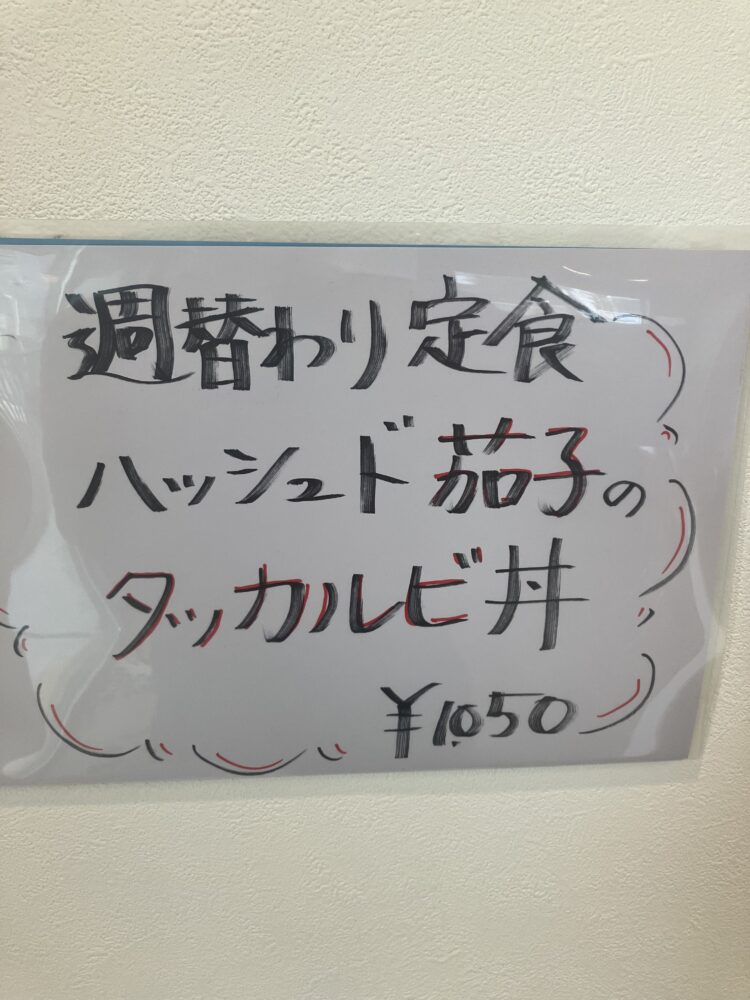 週替わり定食
ハッシュド茄子の
タッカルビ丼
¥1,050